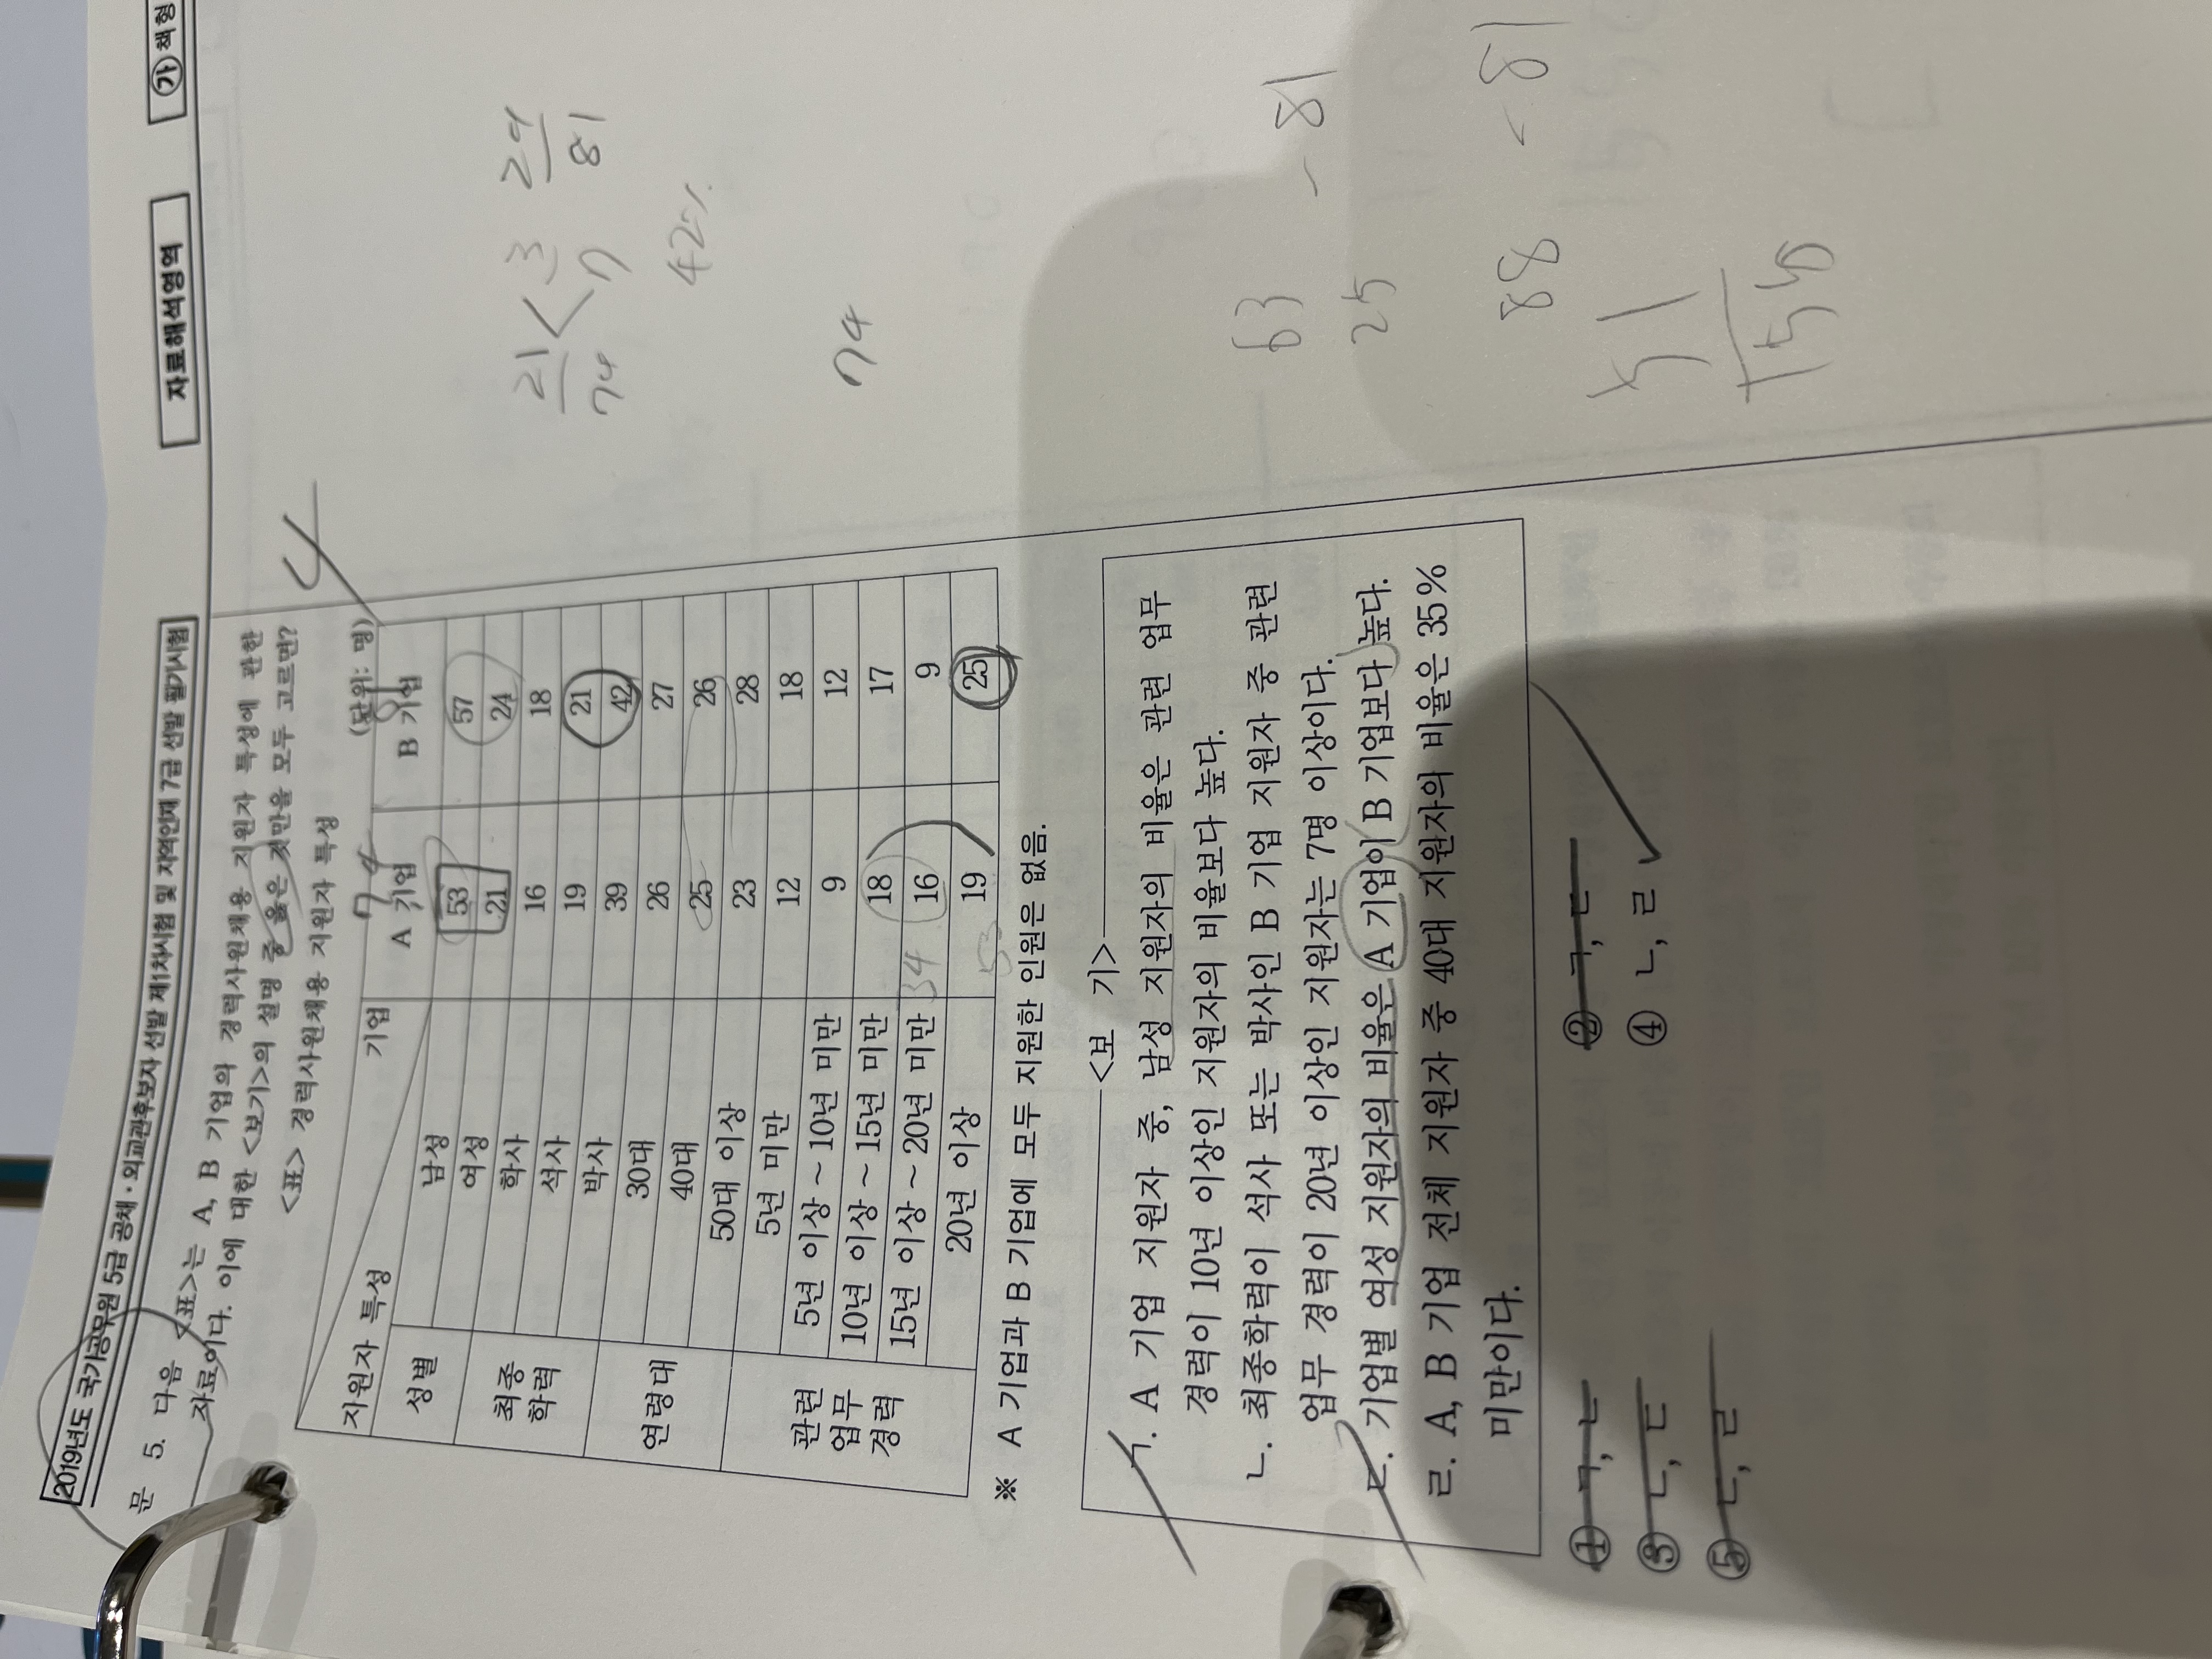 2019년도 국가공무원 5급 공채·외교관후보자 선발 제1차시험 및 지역인재 7급 선발 필기시험
자료해석영역
가 책형
문 5. 다음 <표>는 A, B 기업의 경력사원채용 지원자 특성에 관한
자료이다. 이에 대한 <보기>의 설명 중 옳은 것만을 모두 고르면?
4
<표> 경력사원채용 지원자 특성
(단위: 명)
74
지원자 특성 기업 A 기업 B 기업
성별 남성 53 57
여성 21 24
최종학력 학사 16 18
석사 19 21
박사 39 42
연령대 30대 26 27
40대 25 26
50대 이상 23 28
관련 업무 경력 5년 미만 12 18
5년 이상 ~ 10년 미만 9 12
10년 이상 ~ 15년 미만 18 17
15년 이상 ~ 20년 미만 16 9
34
20년 이상 19 25
53
※ A 기업과 B 기업에 모두 지원한 인원은 없음.
<보 기>
ㄱ. A 기업 지원자 중, 남성 지원자의 비율은 관련 업무
경력이 10년 이상인 지원자의 비율보다 높다.
ㄴ. 최종학력이 석사 또는 박사인 B 기업 지원자 중 관련
업무 경력이 20년 이상인 지원자는 7명 이상이다.
ㄷ. 기업별 여성 지원자의 비율은 A 기업이 B 기업보다 높다.
ㄹ. A, B 기업 전체 지원자 중 40대 지원자의 비율은 35%
미만이다.
① ㄱ, ㄴ
② ㄱ, ㄷ
③ ㄴ, ㄷ
④ ㄴ, ㄹ
⑤ ㄷ, ㄹ
21 < 3 24
74 7 81
42%
74
63 - 81
25
88 - 81
51
155